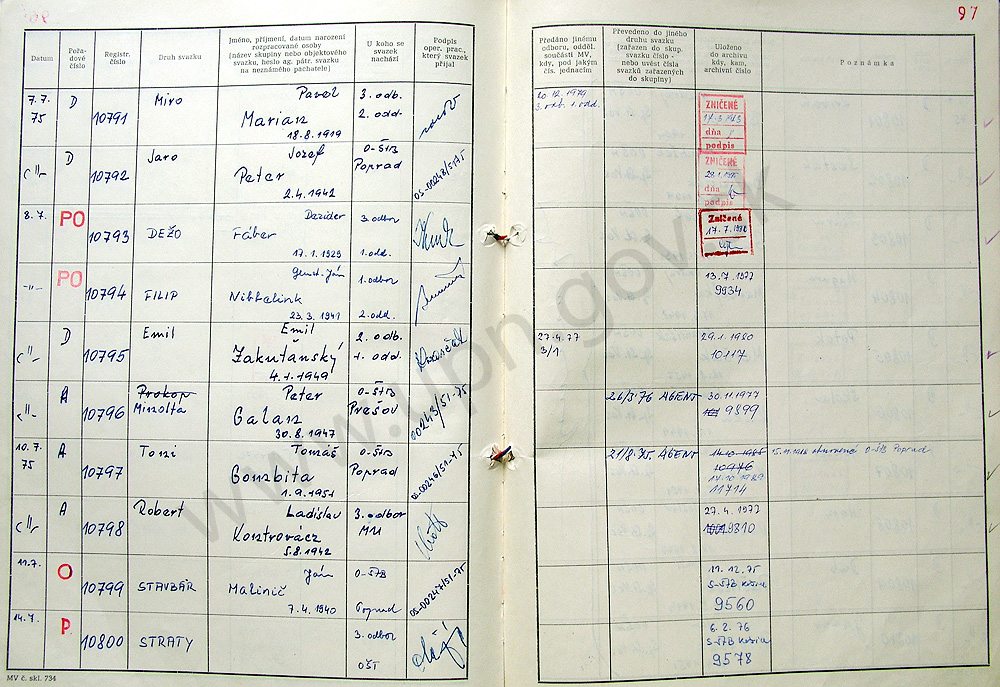 97
Datum
Pořa-
dové
číslo
Registr.
číslo
Druh svazku
Jméno, příjmení, datum narození
rozpracované osoby
(název skupiny nebo objektového
svazku, heslo ag. pátr. svazku
na neznámého pachatele)
U koho se
svazek
nachází
Podpis
oper. prac.,
který svazek
přijal
Předáno jinému
odboru, odděl.
součásti MV,
kdy, pod jakým
čís. jednacím
Převedeno do jiného
druhu svazku
(zařazen do skup.
svazku číslo -
nebo uvést čísla
svazků zařazených
do skupiny)
Uloženo
do archivu
kdy, kam,
archivní číslo
Poznámka
7.7.
75
D
10791
Miro
Pavel
Marian
18.8.1919
3. odb.
2. odd.
20.12.1979
3. odb. 1. odd.
ZNIČENÉ
dňa
podpis
-"-
D
10792
Jaro
Jozef
Peter
2.4.1942
O-ŠTB
Poprad
OS-00248/51-75
ZNIČENÉ
dňa
podpis
8.7.
PO
10793
DEŽO
Dezider
Fáber
17.1.1929
3. odbor
1. odd.
Zničené
-"-
PO
10794
FILIP
Ján
Nikkelink
23.3.1941
1. odbor
2. odd.
13.7.1977
9934
-"-
D
10795
Emil
Emil
Zakuťanský
4.1.1949
2. odb.
1. odd.
27.4.77
3/1
29.1.1980
10117
-"-
A
10796
Prokop
Minolta
Peter
Galan
30.8.1947
O-ŠTB
Prešov
00243/51-75
26/3 76 AGENT
30.11.1977
9899
10.7.
75
A
10797
Toni
Tomáš
Gombita
1.9.1951
O-ŠTB
Poprad
OS-00246/51-75
21/8.75 AGENT
10976
17.10.1989
11714
O-ŠTB Poprad
-"-
A
10798
Robert
Ladislav
Kontrovácz
5.8.1942
3. odbor
MM
27.4.1977
9810
11.7.
O
10799
STAVBÁR
Ján
Malinič
7.4.1940
O-ŠTB
Poprad
OS-00247/51-75
11.12.75
S-ŠTB Košice
9560
14.7.
P
10800
STRATY
3. odbor
OŠT
6.2.76
S-ŠTB Košice
9578
MV č. skl. 734
www.upn.gov.sk